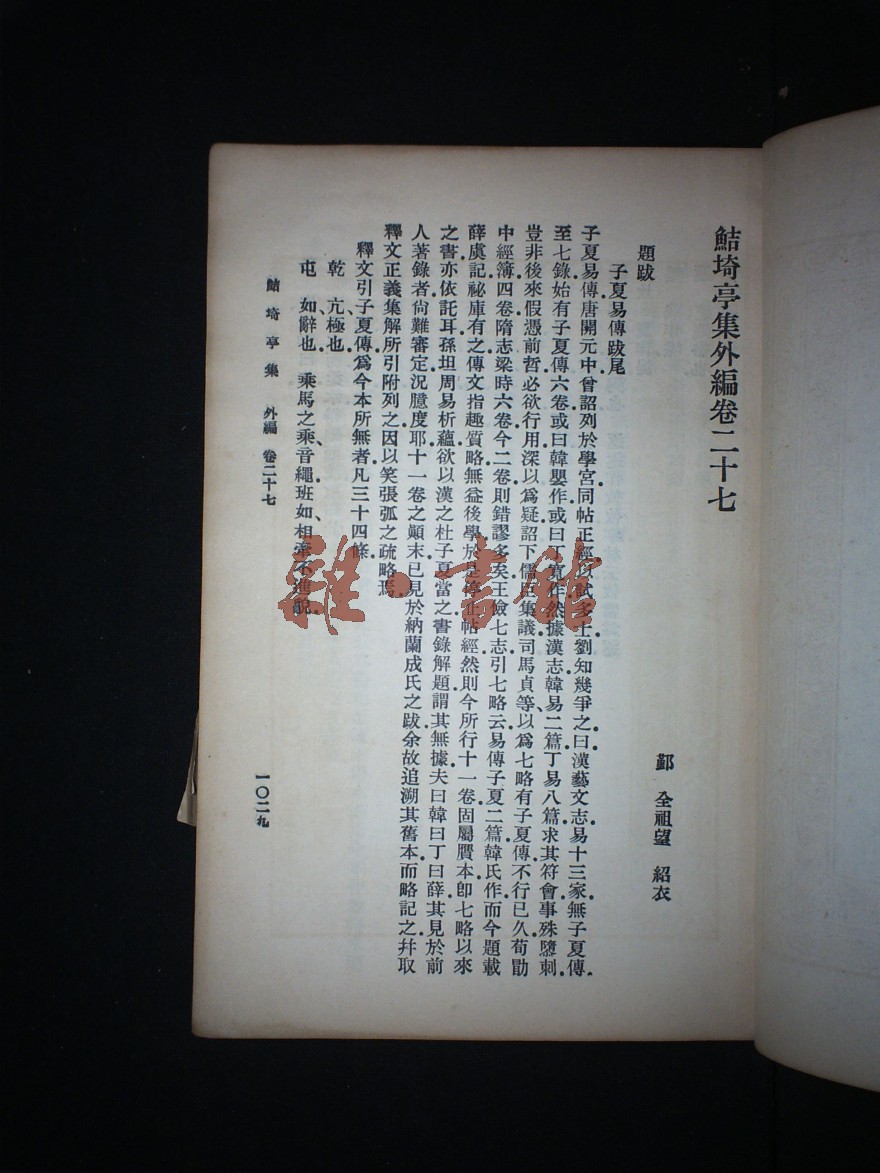 鮚埼亭集外編卷二十七
鄞　全祖望　紹衣
題跋
子夏易傳跋尾
子夏易傳唐開元中曾詔列於學宮同帖正經以試多士劉知幾爭之曰漢藝文志易十三家無子夏傳
至七錄始有子夏傳六卷或曰韓嬰作或曰丁寬作然據漢志韓易二篇丁易八篇求其符會事殊隳刺
豈非後來假憑前哲必欲行用深以爲疑詔下儒臣集議司馬貞等以爲七略有子夏傳不行已久荀勖
中經簿四卷隋志梁時六卷今二卷則錯謬多矣王儉七志引七略云易傳子夏二篇韓氏作而今題載
薛虞記祕庫有之傳文指趣質略無益後學於是停止帖經然則今所行十一卷固屬贋本卽七略以來
之書亦依託耳孫坦周易析蘊欲以漢之杜子夏當之書錄解題謂其無據夫曰韓曰丁曰薛其見於前
人著錄者尙難審定況臆度耶十一卷之顚末已見於納蘭成氏之跋余故追溯其舊本而略記之幷取
釋文正義集解所引附列之因以笑張弧之疏略焉
釋文引子夏傳爲今本所無者凡三十四條
乾　亢極也
屯　如辭也　乘馬之乘音繩班如相牽不進貌
鮚埼亭集　外編　卷二十七
一〇二九
雜·書館